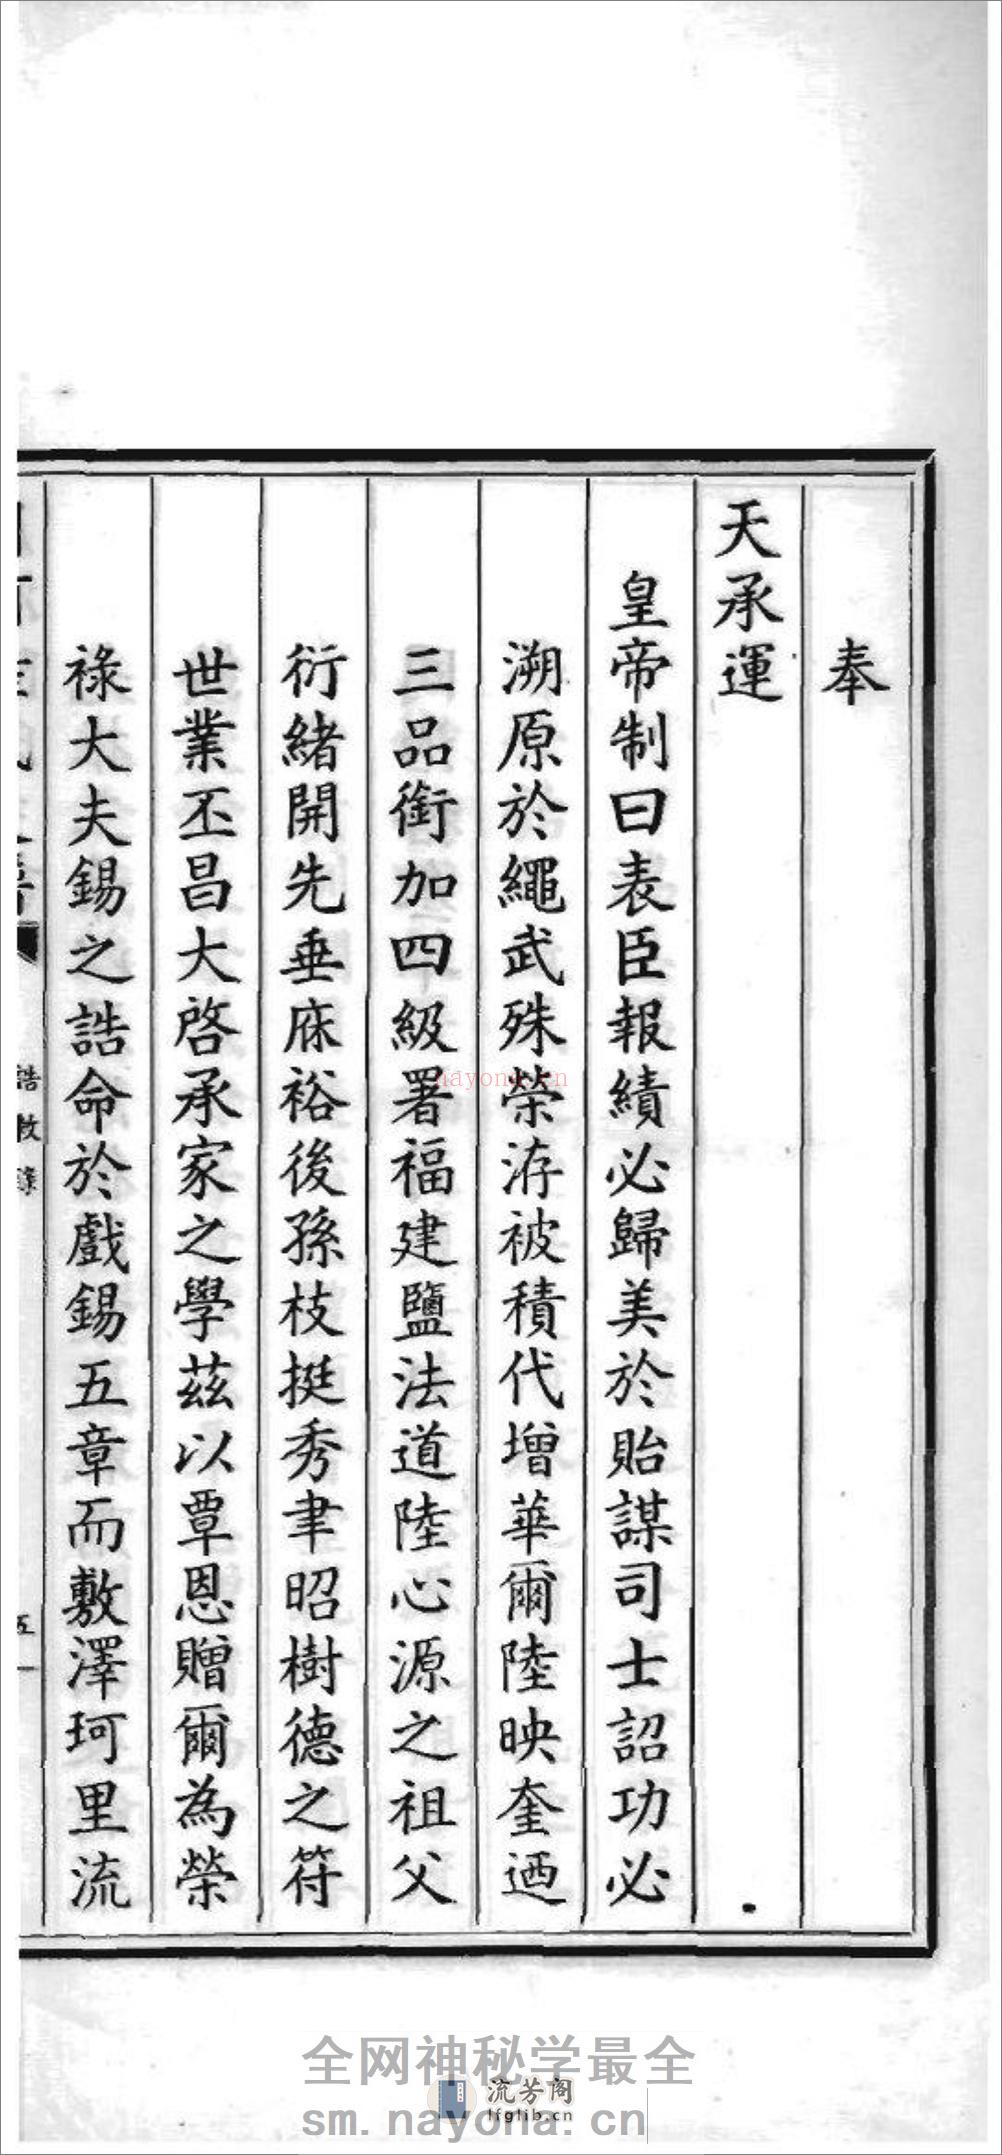 奉
天承運
皇帝制曰表臣報績必歸美於貽謀司士詔功必
溯原於繩武殊榮洊被積代增華爾陸映奎迺
三品銜加四級署福建鹽法道陸心源之祖父
衍緒開先垂庥裕後孫枝挺秀聿昭樹德之符
世業丕昌大啓承家之學茲以覃恩贈爾為榮
祿大夫錫之誥命於戲錫五章而敷澤珂里流
誥敕錄
五一
nayona.cn
全网神秘学最全
流芳阁
lfglib.cn
sm.nayona.cn